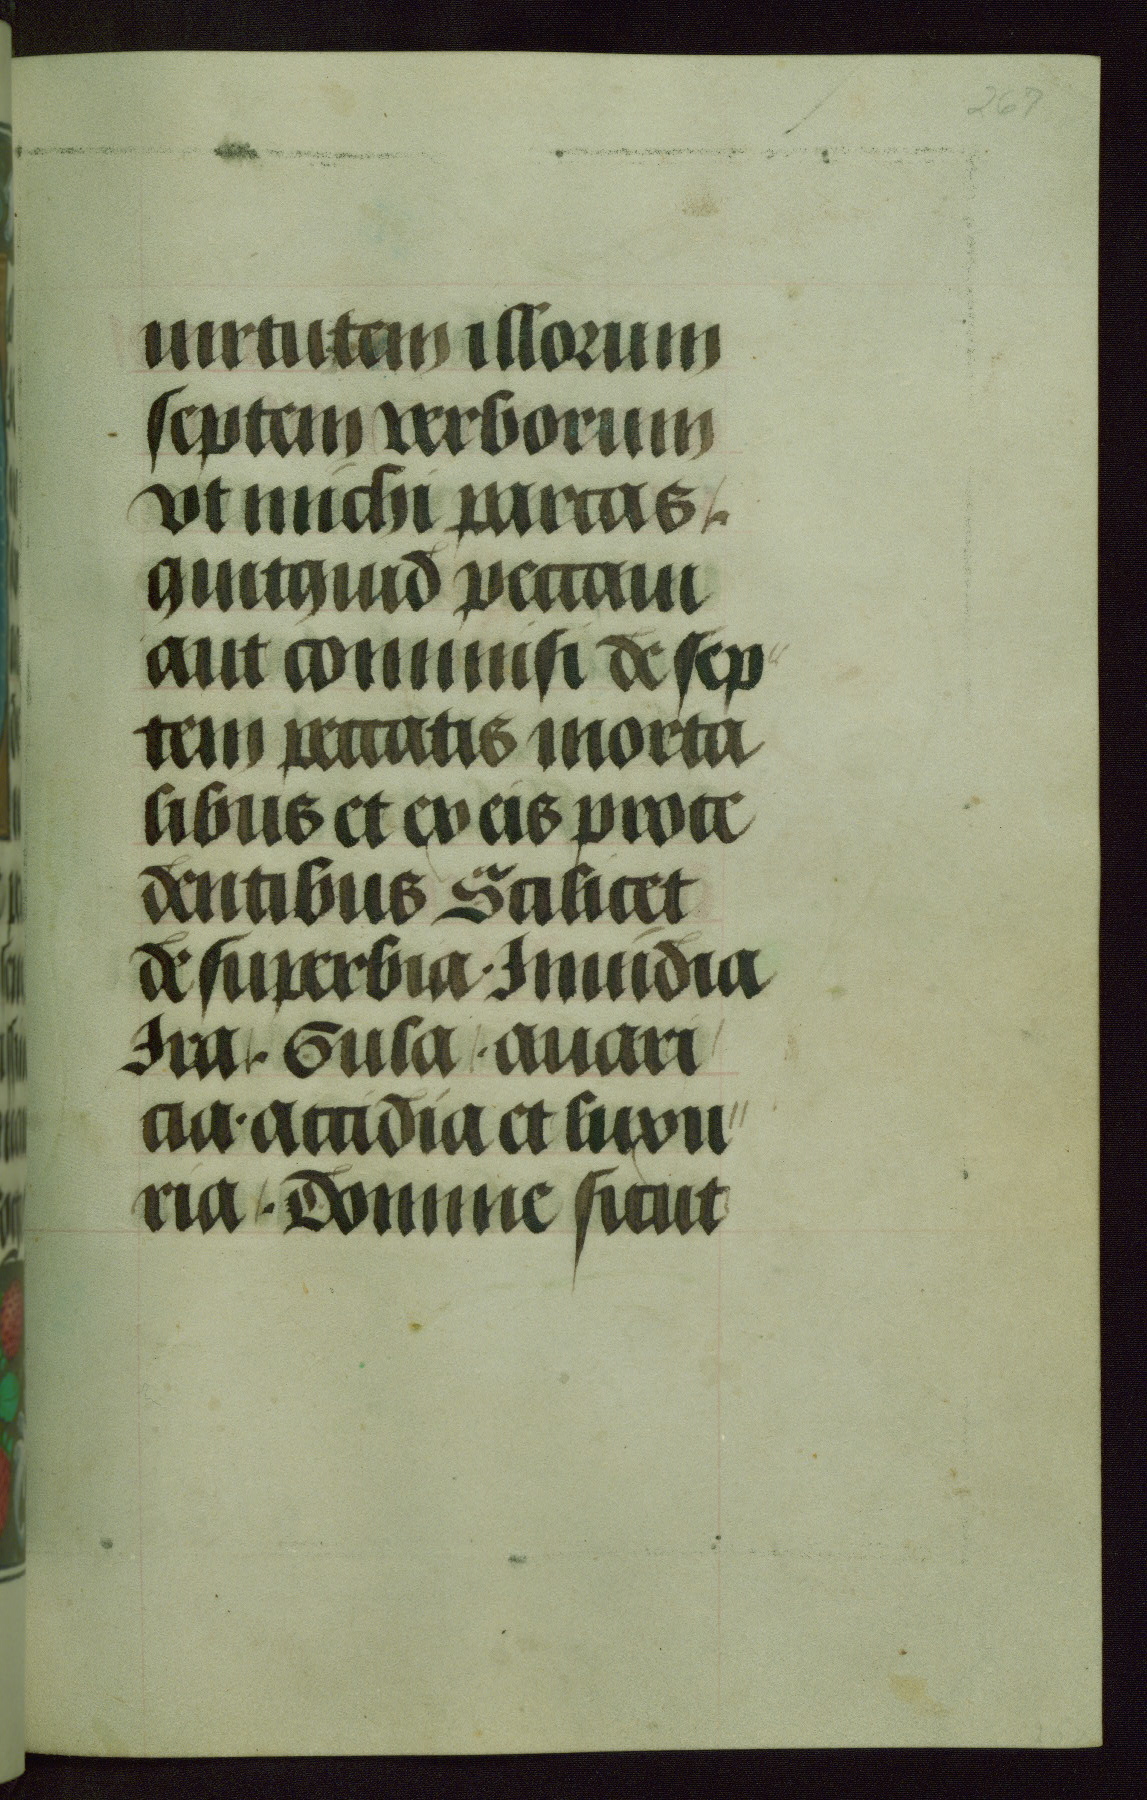 267
uirtutem illorum
septem verborum
vt michi parcas
quitquid peccaui
aut commisi de sep"
tem peccatis morta
libus et ex eis proce
dentibus Scilicet
de superbia. Inuidia
Ira. Gula. auari
cia. accidia et luxu"
ria. Domine sicut